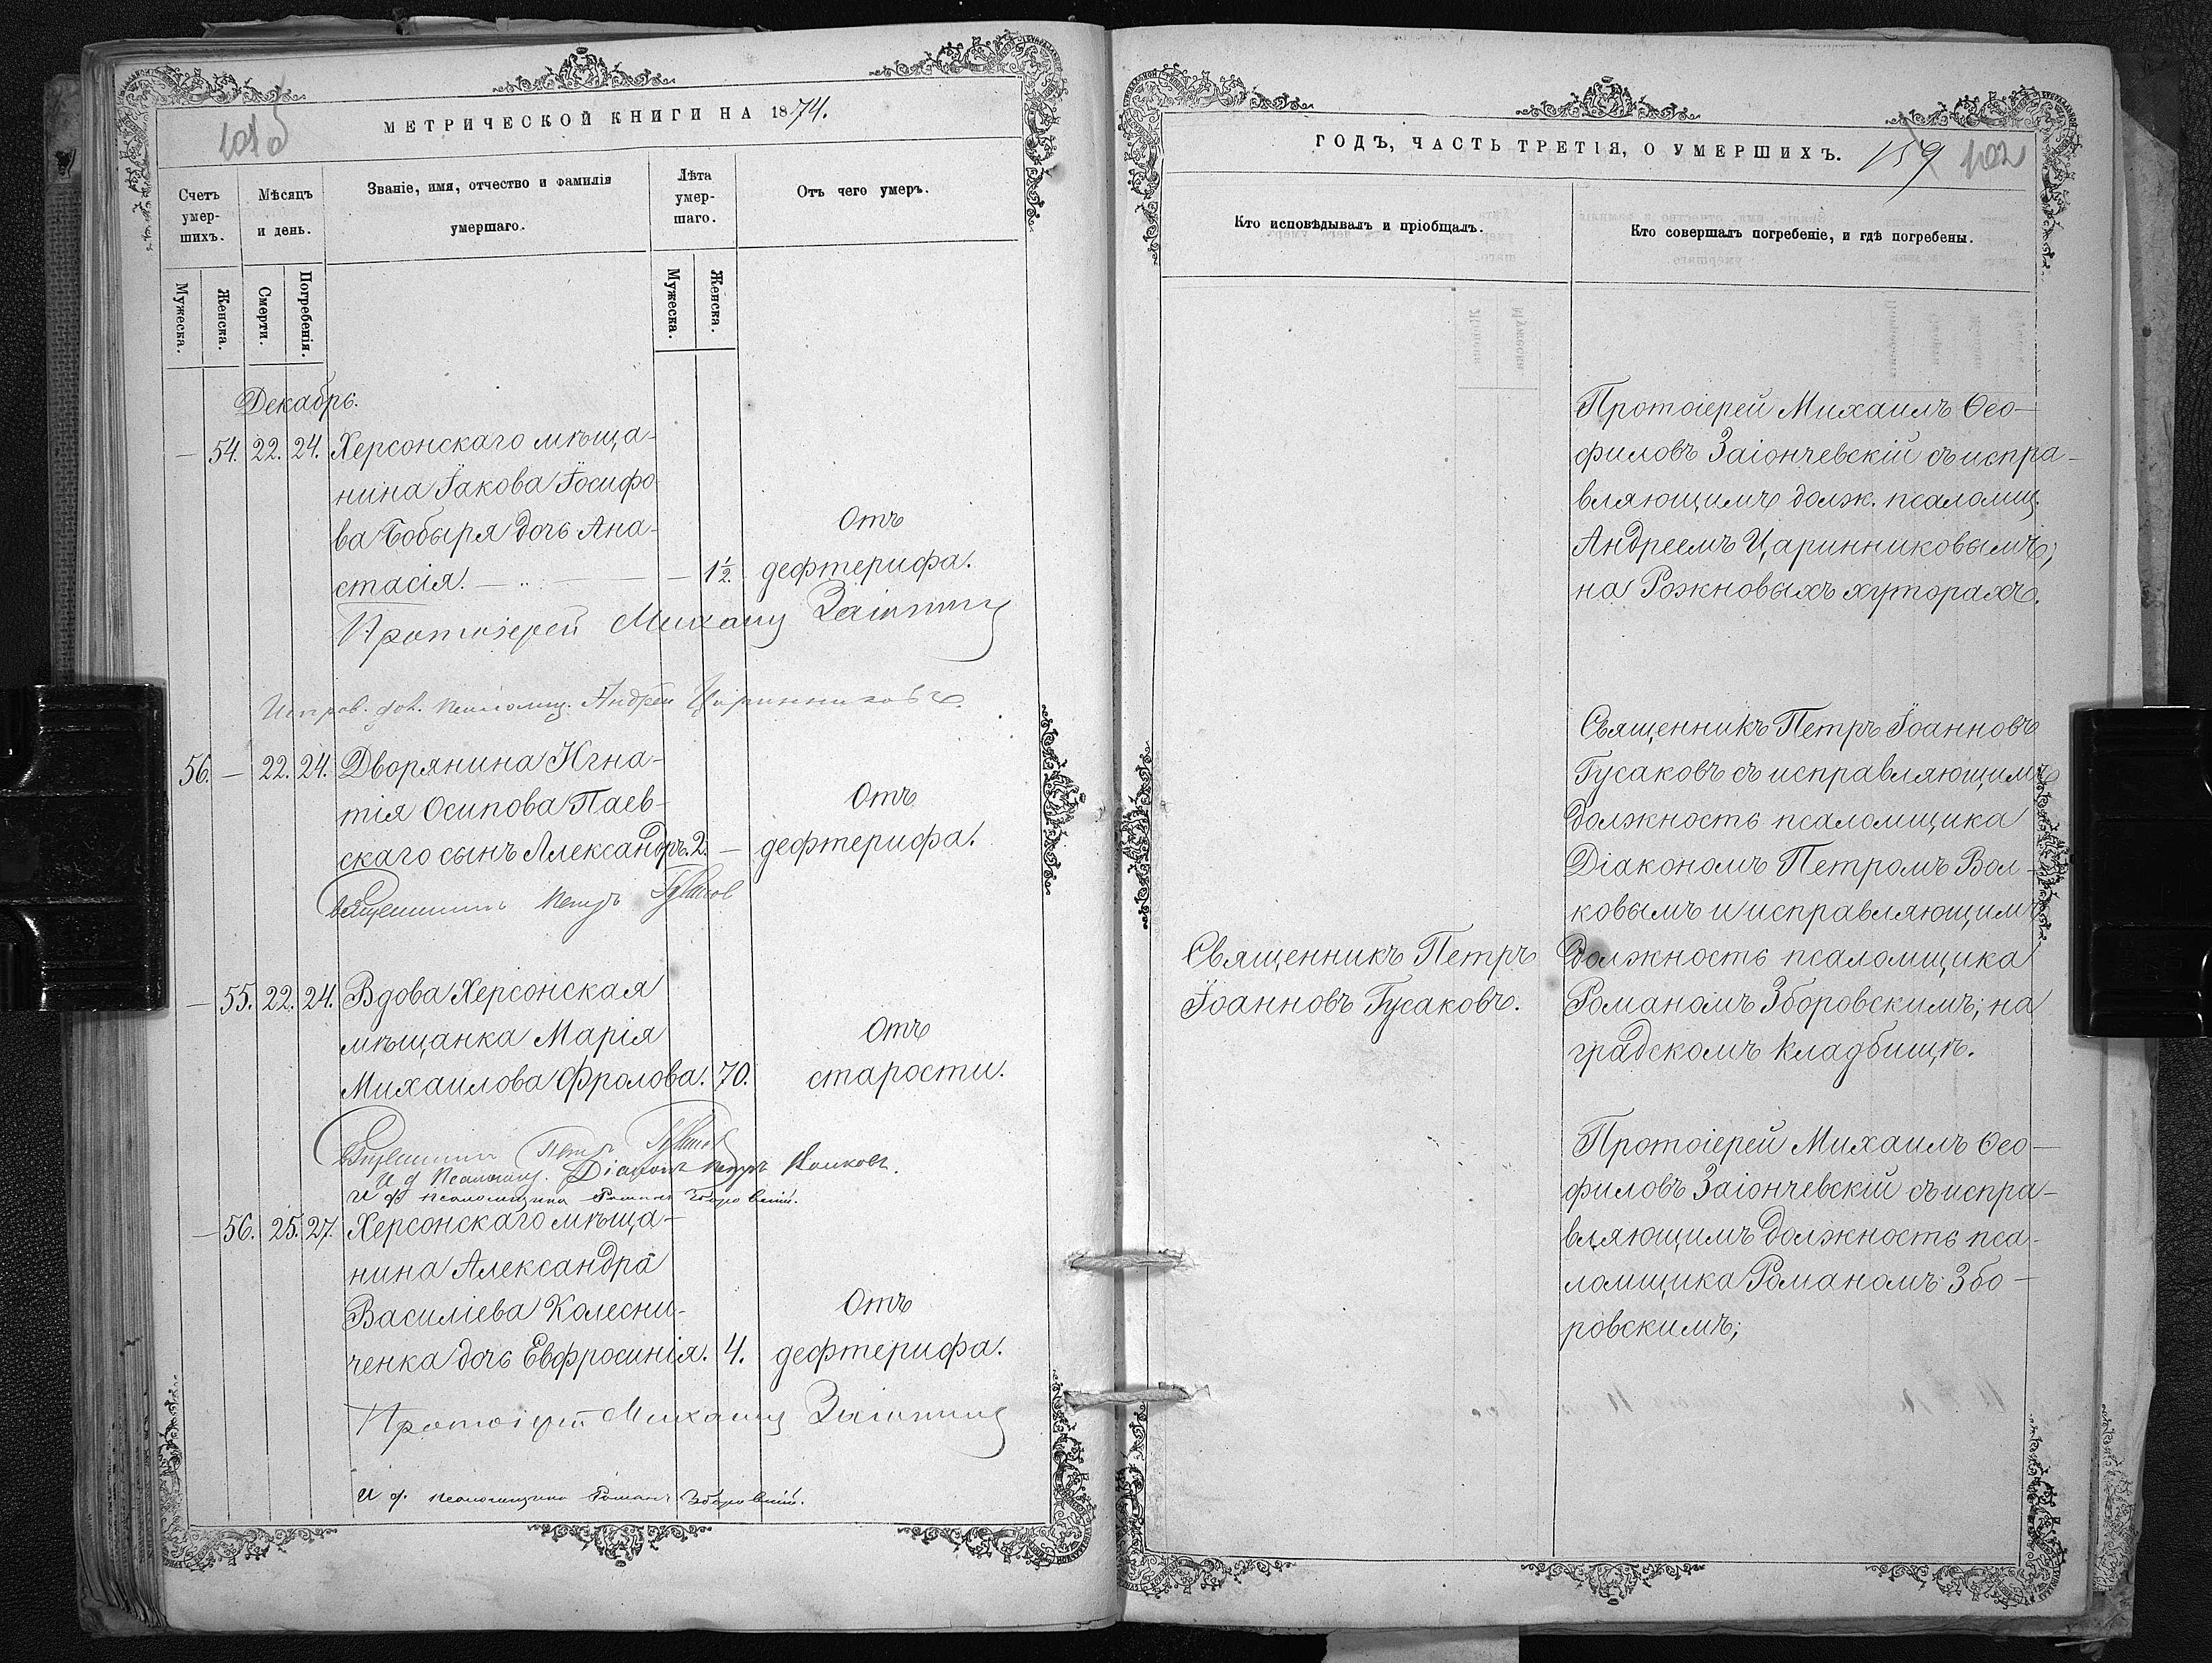 МЕТРИЧЕСКОЙ КНИГИ НА 1874.
Счетъ умер-шихъ.
Мѣсяцъ и день.
Званіе, имя, отчество и фамилія умершаго.
Лѣта умер-шаго.
Отъ чего умеръ.
Мужеска.
Женска.
Смерти.
Погребенія.
Мужеска.
Женска.
Декабрь.
— 54. 22. 24. Херсонскаго мѣща-
нина Іакова Іосифо-
ва Бобыря дочь Ана- Отъ
стасія. — 1½. дефтерифа.
Протоіерей Михаилъ
Исправ. дол. псаломщ. Андрей Царинниковъ.
56. — 22. 24. Дворянина Игна-
тія Осипова Паев- Отъ
скаго сынъ Александръ. 2. — дефтерифа.
Священникъ Петръ Гусаковъ
— 55. 22. 24. Вдова Херсонская
мѣщанка Марія Отъ
Михаилова Фролова. 70. старости.
Священникъ Петръ Гусаковъ
И д псаломщ. Діаконъ Петръ Волковъ.
И д. псаломщика Романъ Зборовскій.
— 56. 25. 27. Херсонскаго мѣща-
нина Александра
Василіева Колесни- Отъ
ченка дочь Евфросинія. 4. дефтерифа.
Протоіерей Михаилъ
И д. псаломщика Романъ Зборовскій.
ГОДЪ, ЧАСТЬ ТРЕТІЯ, О УМЕРШИХЪ. 159 102
Кто исповѣдывалъ и пріобщалъ.
Кто совершалъ погребеніе, и гдѣ погребены.
Протоіерей Михаилъ Ѳео-
филовъ Заіончевскій съ испра-
вляющимъ долж. псаломщ.
Андреемъ Царинниковымъ;
на Рожновыхъ хуторахъ.
Священникъ Петръ Іоанновъ
Гусаковъ съ исправляющимъ
должность псаломщика
Діакономъ Петромъ Вол-
ковымъ и исправляющимъ
должность псаломщика
Романомъ Зборовскимъ; на
градскомъ кладбищѣ.
Священникъ Петръ
Іоанновъ Гусаковъ.
Протоіерей Михаилъ Ѳео-
филовъ Заіончевскій съ испра-
вляющимъ должность пса-
ломщика Романомъ Збо-
ровскимъ;